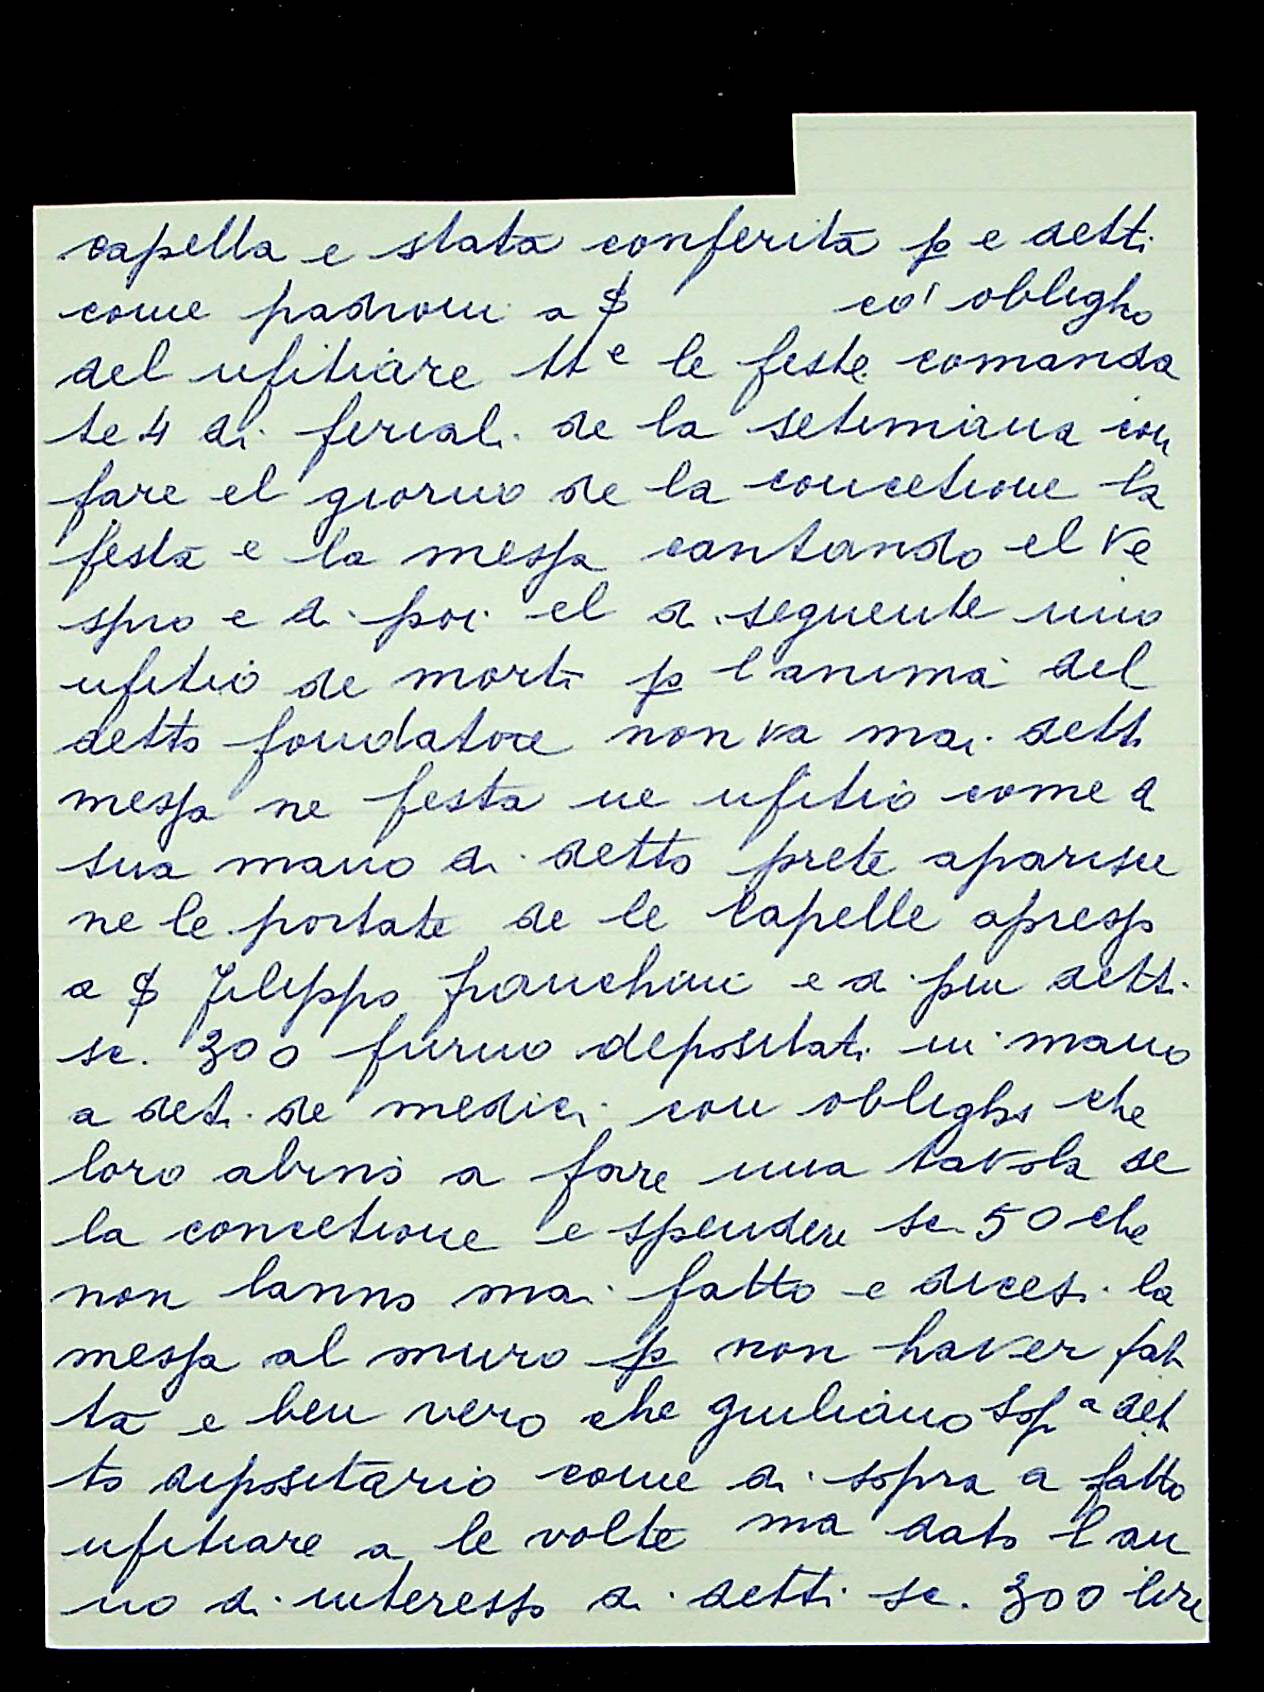 capella e stata conferita p e detti
come padroni a $ co' obligho
del ufitiare tte le feste comanda
te 4 di feriali de la setimana con
fare el giorno de la concetione la
festa e la messa cantando el ve
spro e di poi el di seguente uno
ufitio de morti p l'anima del
detto fondatore non va mai detti
messa ne festa ne ufitio come a
sua mano di detto prete aparisce
ne le portate de le capelle apresso
a $ Filippo franchini e di piu detti
sc. 300 furno depositati in mano
a deti de medici con obligho che
loro abino a fare una tavola de
la concetione e spendere sc. 50 che
non lanno mai fatto e dicesi la
messa al muro p non haver fat
ta e ben vero che giuliano sopa det
to depositario come di sopra a fatto
ufitiare a le volte ma dato l'an
no di interesso di detti sc. 300 lire